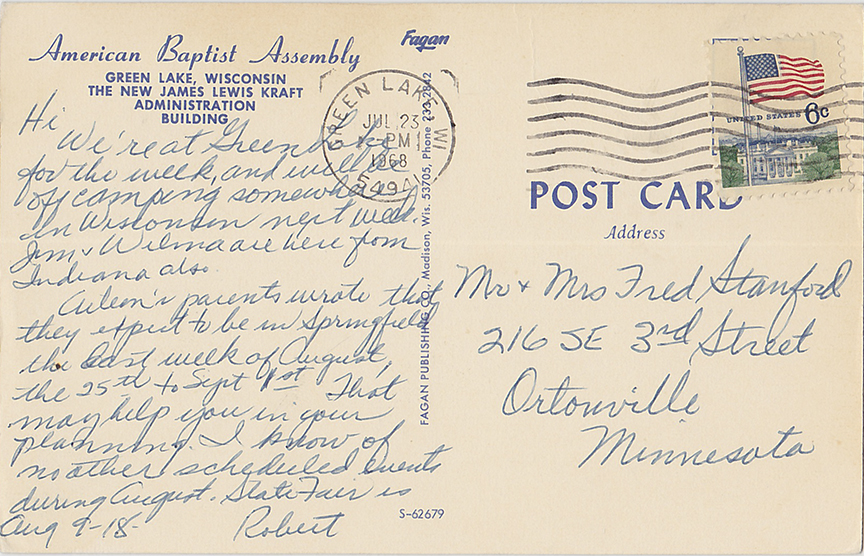 American Baptist Assembly
GREEN LAKE, WISCONSIN
THE NEW JAMES LEWIS KRAFT
ADMINISTRATION
BUILDING
Hi
We're at Green Lake
for the week, and will be
off camping somewhere
in Wisconsin next week.
Jim & Wilma are here from
Indiana also.
parents wrote that
they expect to be in Springfield
the last week of August,
the 25th to Sept 1st. That
may help you in your
planning. I know of
no other scheduled events
during August. State Fair is
Aug 9-18-
Robert
Fagan
FAGAN PUBLISHING CO., Madison, Wis. 53705, Phone 233-2842
S-62679
GREEN LAKE, WI
JUL 23
PM
1968
54941
UNITED STATES 6c
POST CARD
Address
Mr & Mrs Fred Stanford
216 SE 3rd Street
Ortonville
Minnesota